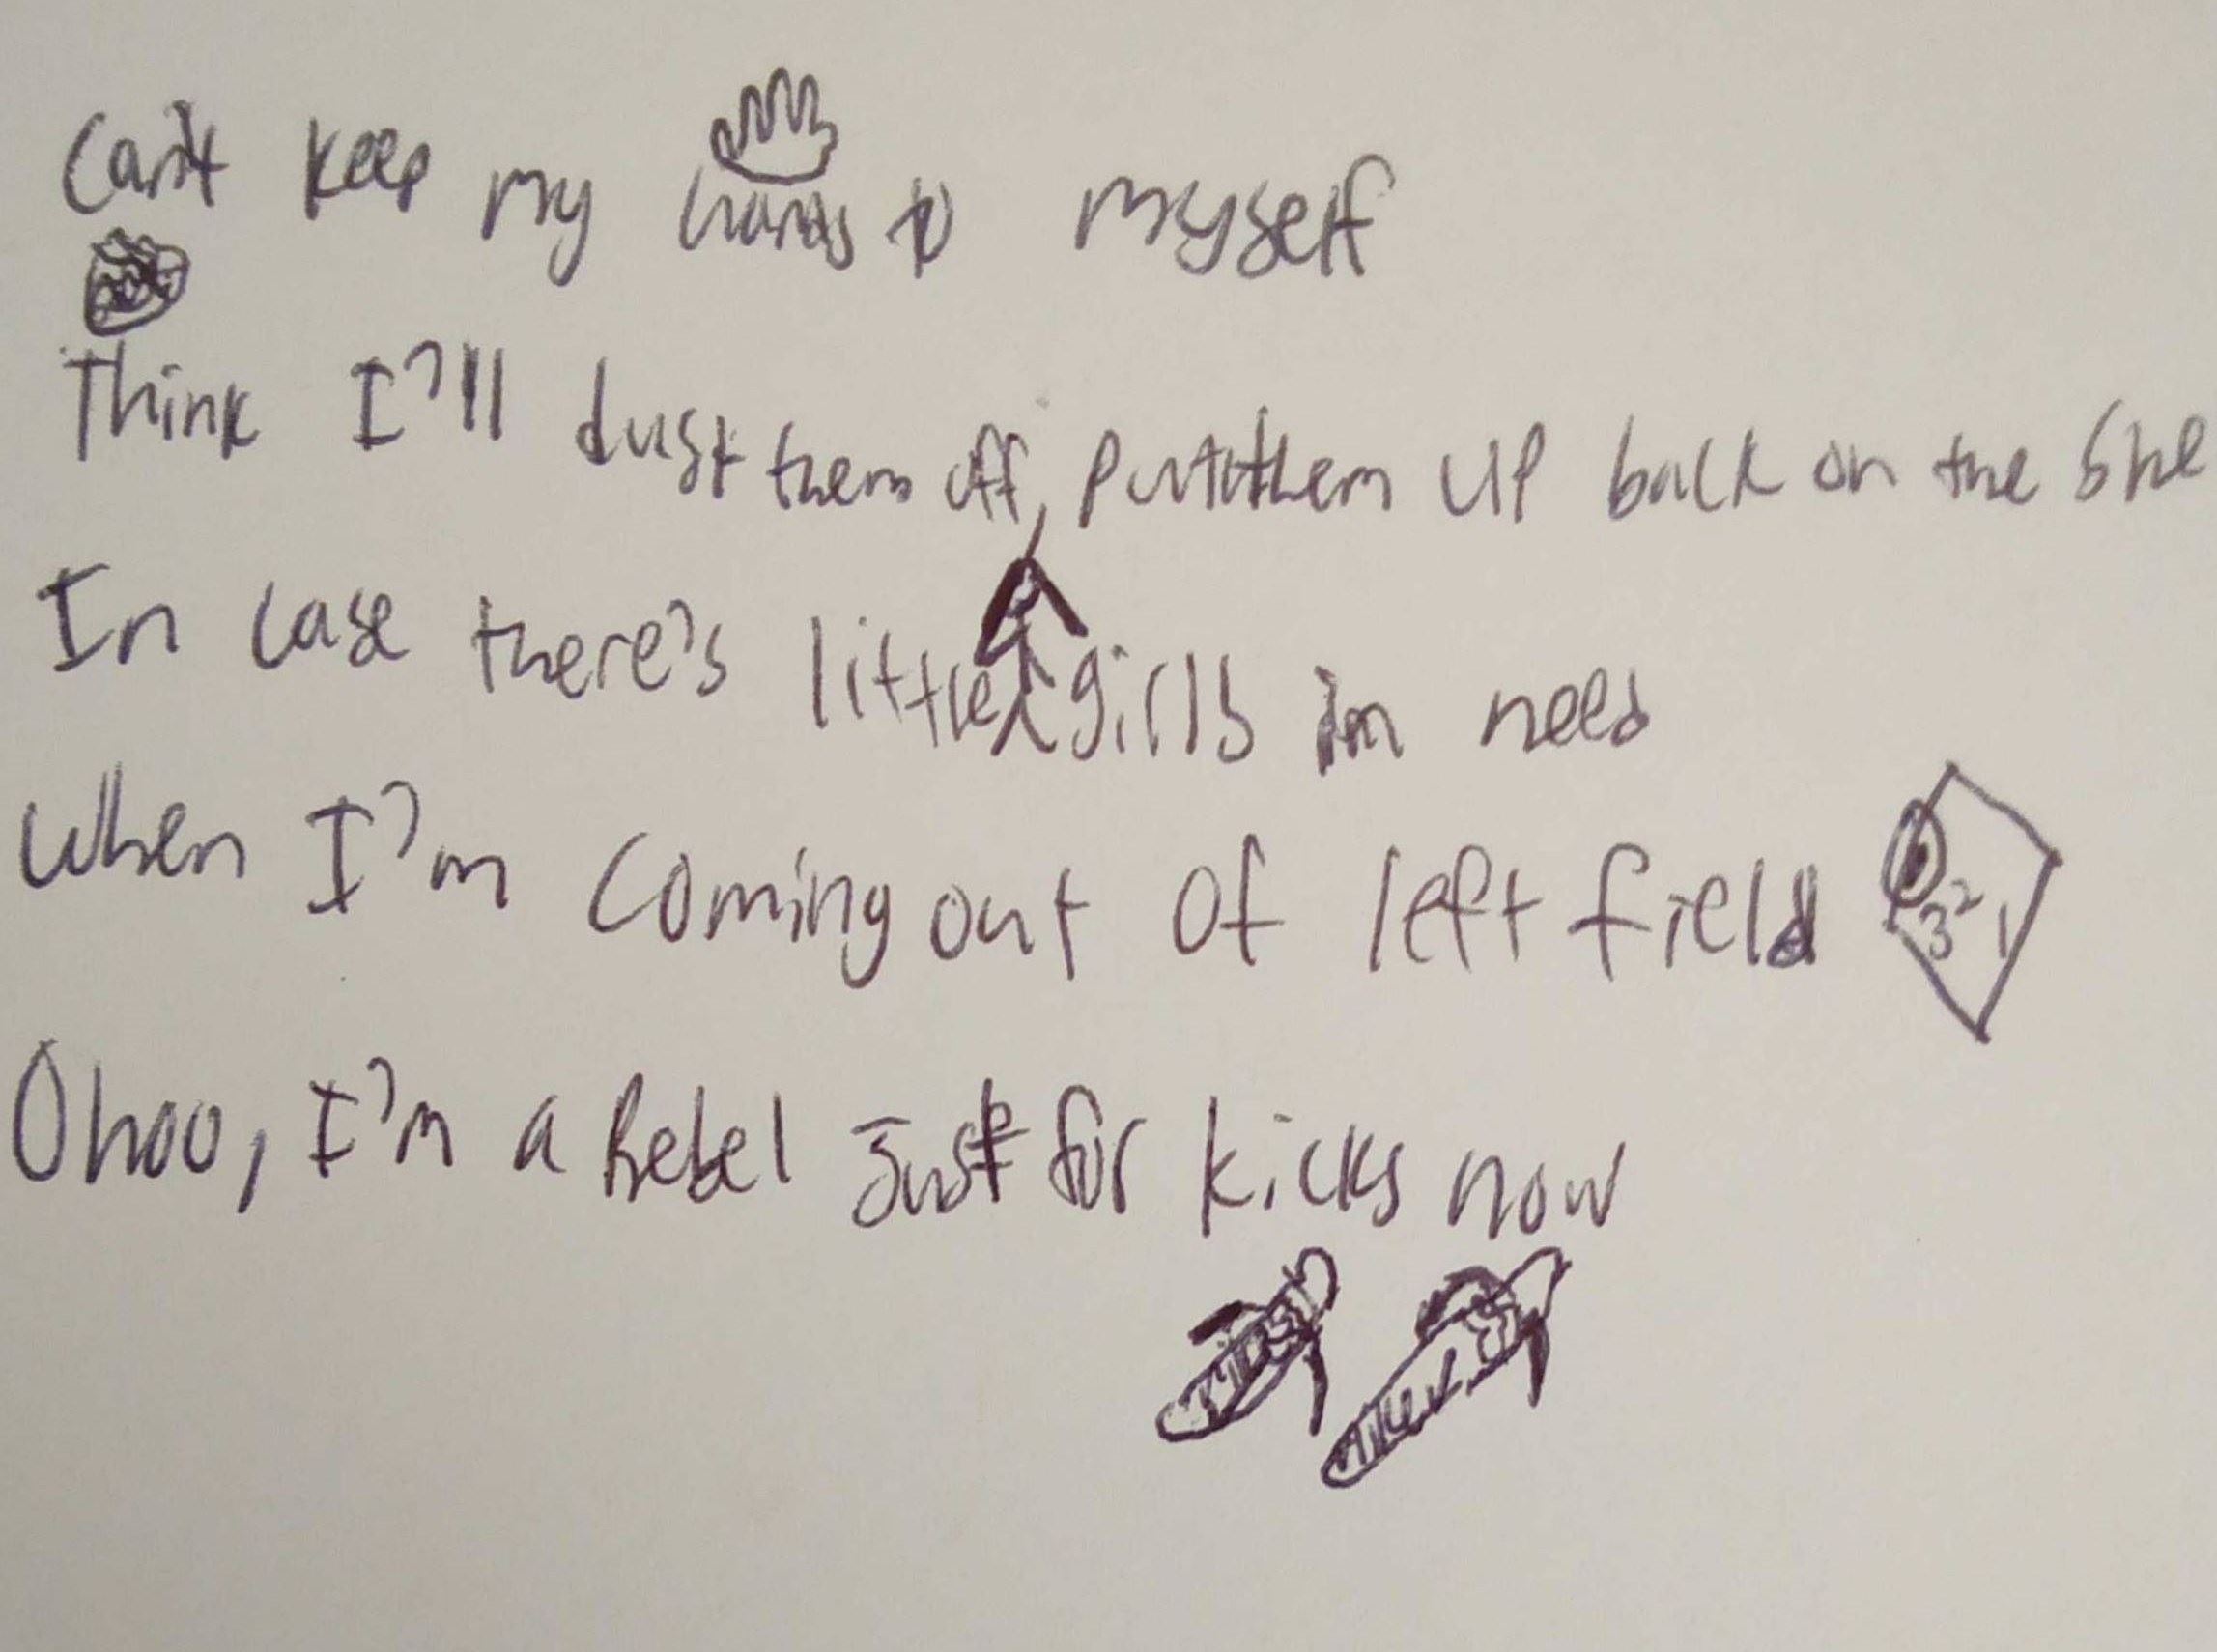 Can't keep my hands to myself
Think I'll dust them off, put them up back on the she
In case there's little girls in need
When I'm coming out of left field
3 2 1
Ohoo, I'm a Rebel Just for kicks now